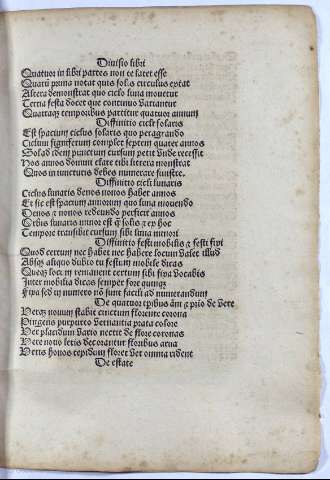 Diuisio libri
Quatuor in libri partes non te latet esse
Quarū prima notat quis solis circulus extat
Altera demonstrat quo ciclo luna mouetur
Tertia festa docet que continuo variantur
Quartaqȝ temporibus partitur quatuor annum
Diffinitio cicli solaris
Est spacium ciclus solaris quo peragrando
Ciclum signiferum complet septem quater annos
Sol ad idem punctum cursum petit vnde recessit
Nos annos donum clare tibi littera monstrat
Quos in iuncturis debes numerare sinistre.
Diffinitio cicli lunaris
Ciclus lunaris denos nonos habet annos
Et sic est spacium annorum quo luna mouendo
Denos ⁊ nonos redeundo perficit annos
Orbis lunaris minor est qȝ solis ⁊ ex hoc
Tempore transibit cursum sibi luna minori
Diffinitio festi mobilis ⁊ festi fixi
Quod certum nec habet nec habere locum valet illud
Absqȝ aliquo dubio tu festum mobile dicas
Queqȝ locū remanent certum sibi fixa vocabis
Inter mobilia dicas semper fore quinqȝ
Fixa sed in numero nō sunt facili ad numerandum
De quatuor tpibus āni ⁊ prīo de vere
Verqȝ nouum stabit cinctum florente corona
Pingens purpureo vernantia prata colore
Ver placidum vario nectit de flore coronas
Vere nouo letis decorantur floribus arua
Veris honos tepidum floret vet omnia rident
De estate